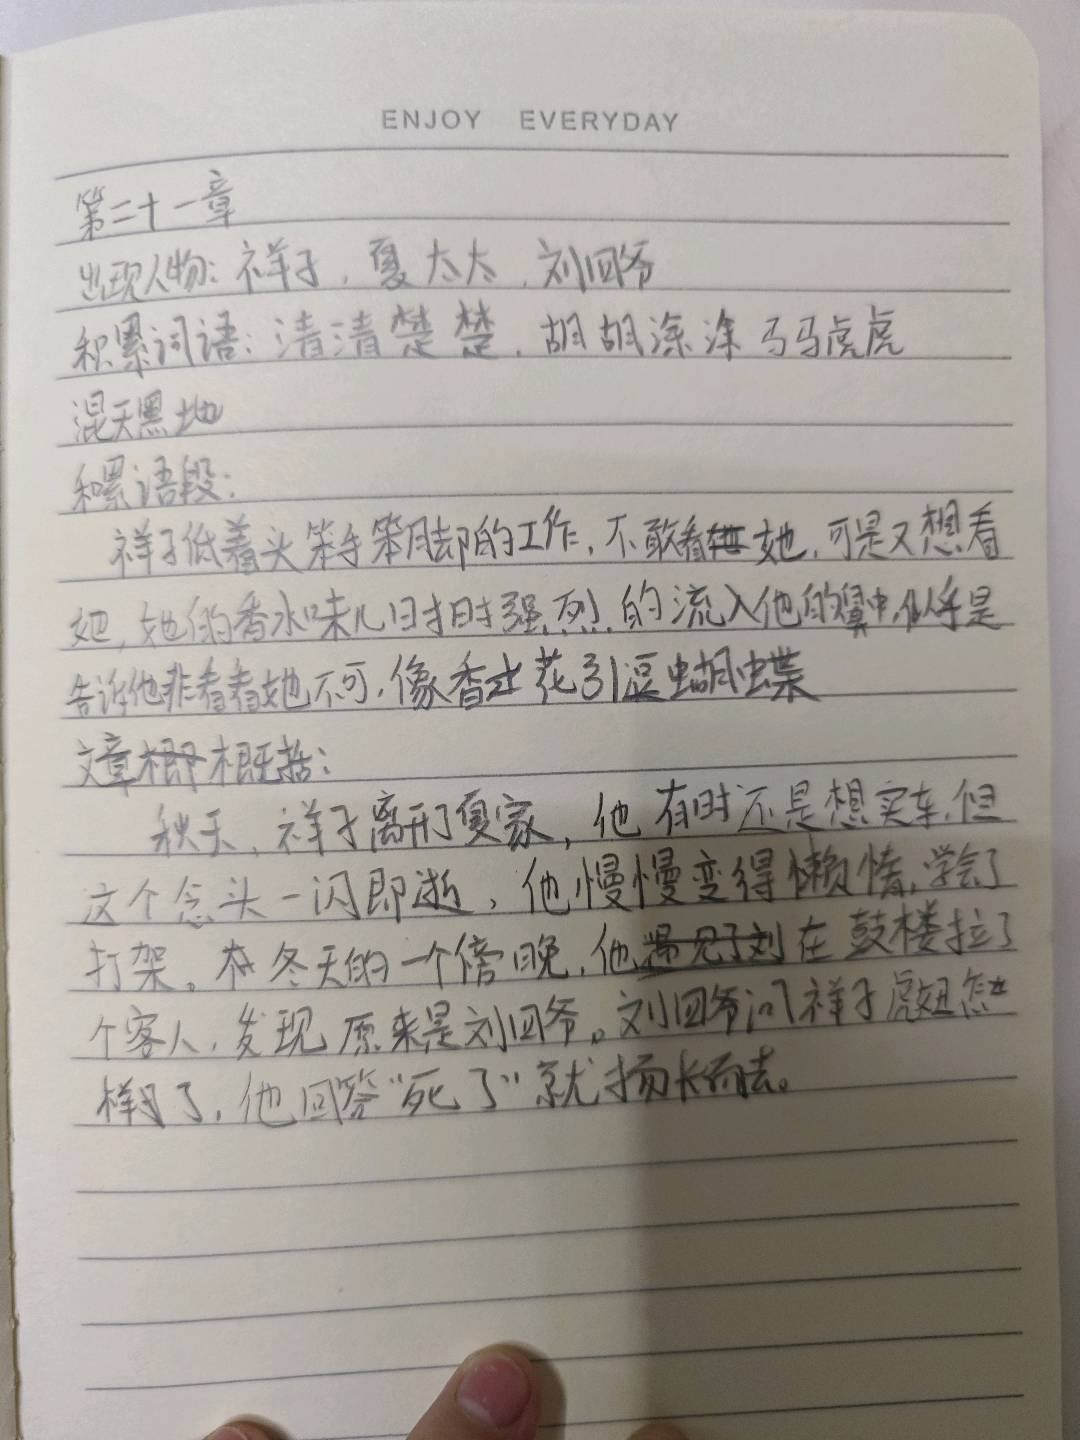 ENJOY EVERYDAY
第二十一章
出现人物:祥子,夏太太,刘四爷
积累词语:清清楚楚,胡胡涂涂 马马虎虎
混天黑地
积累语段:
祥子低着头笨手笨脚的工作,不敢看她,可是又想看
她,她的香水味儿时时强烈的流入他的鼻中,似乎是
告诉他非看看她不可,像香花引逗蝴蝶
文章概括:
秋天,祥子离开了夏家,他有时还是想买车,但
这个念头一闪即逝,他慢慢变得懒惰,学会了
打架。冬天的一个傍晚,他在鼓楼拉了
个客人,发现原来是刘四爷。刘四爷问祥子虎妞怎
样了,他回答“死了”就扬长而去。